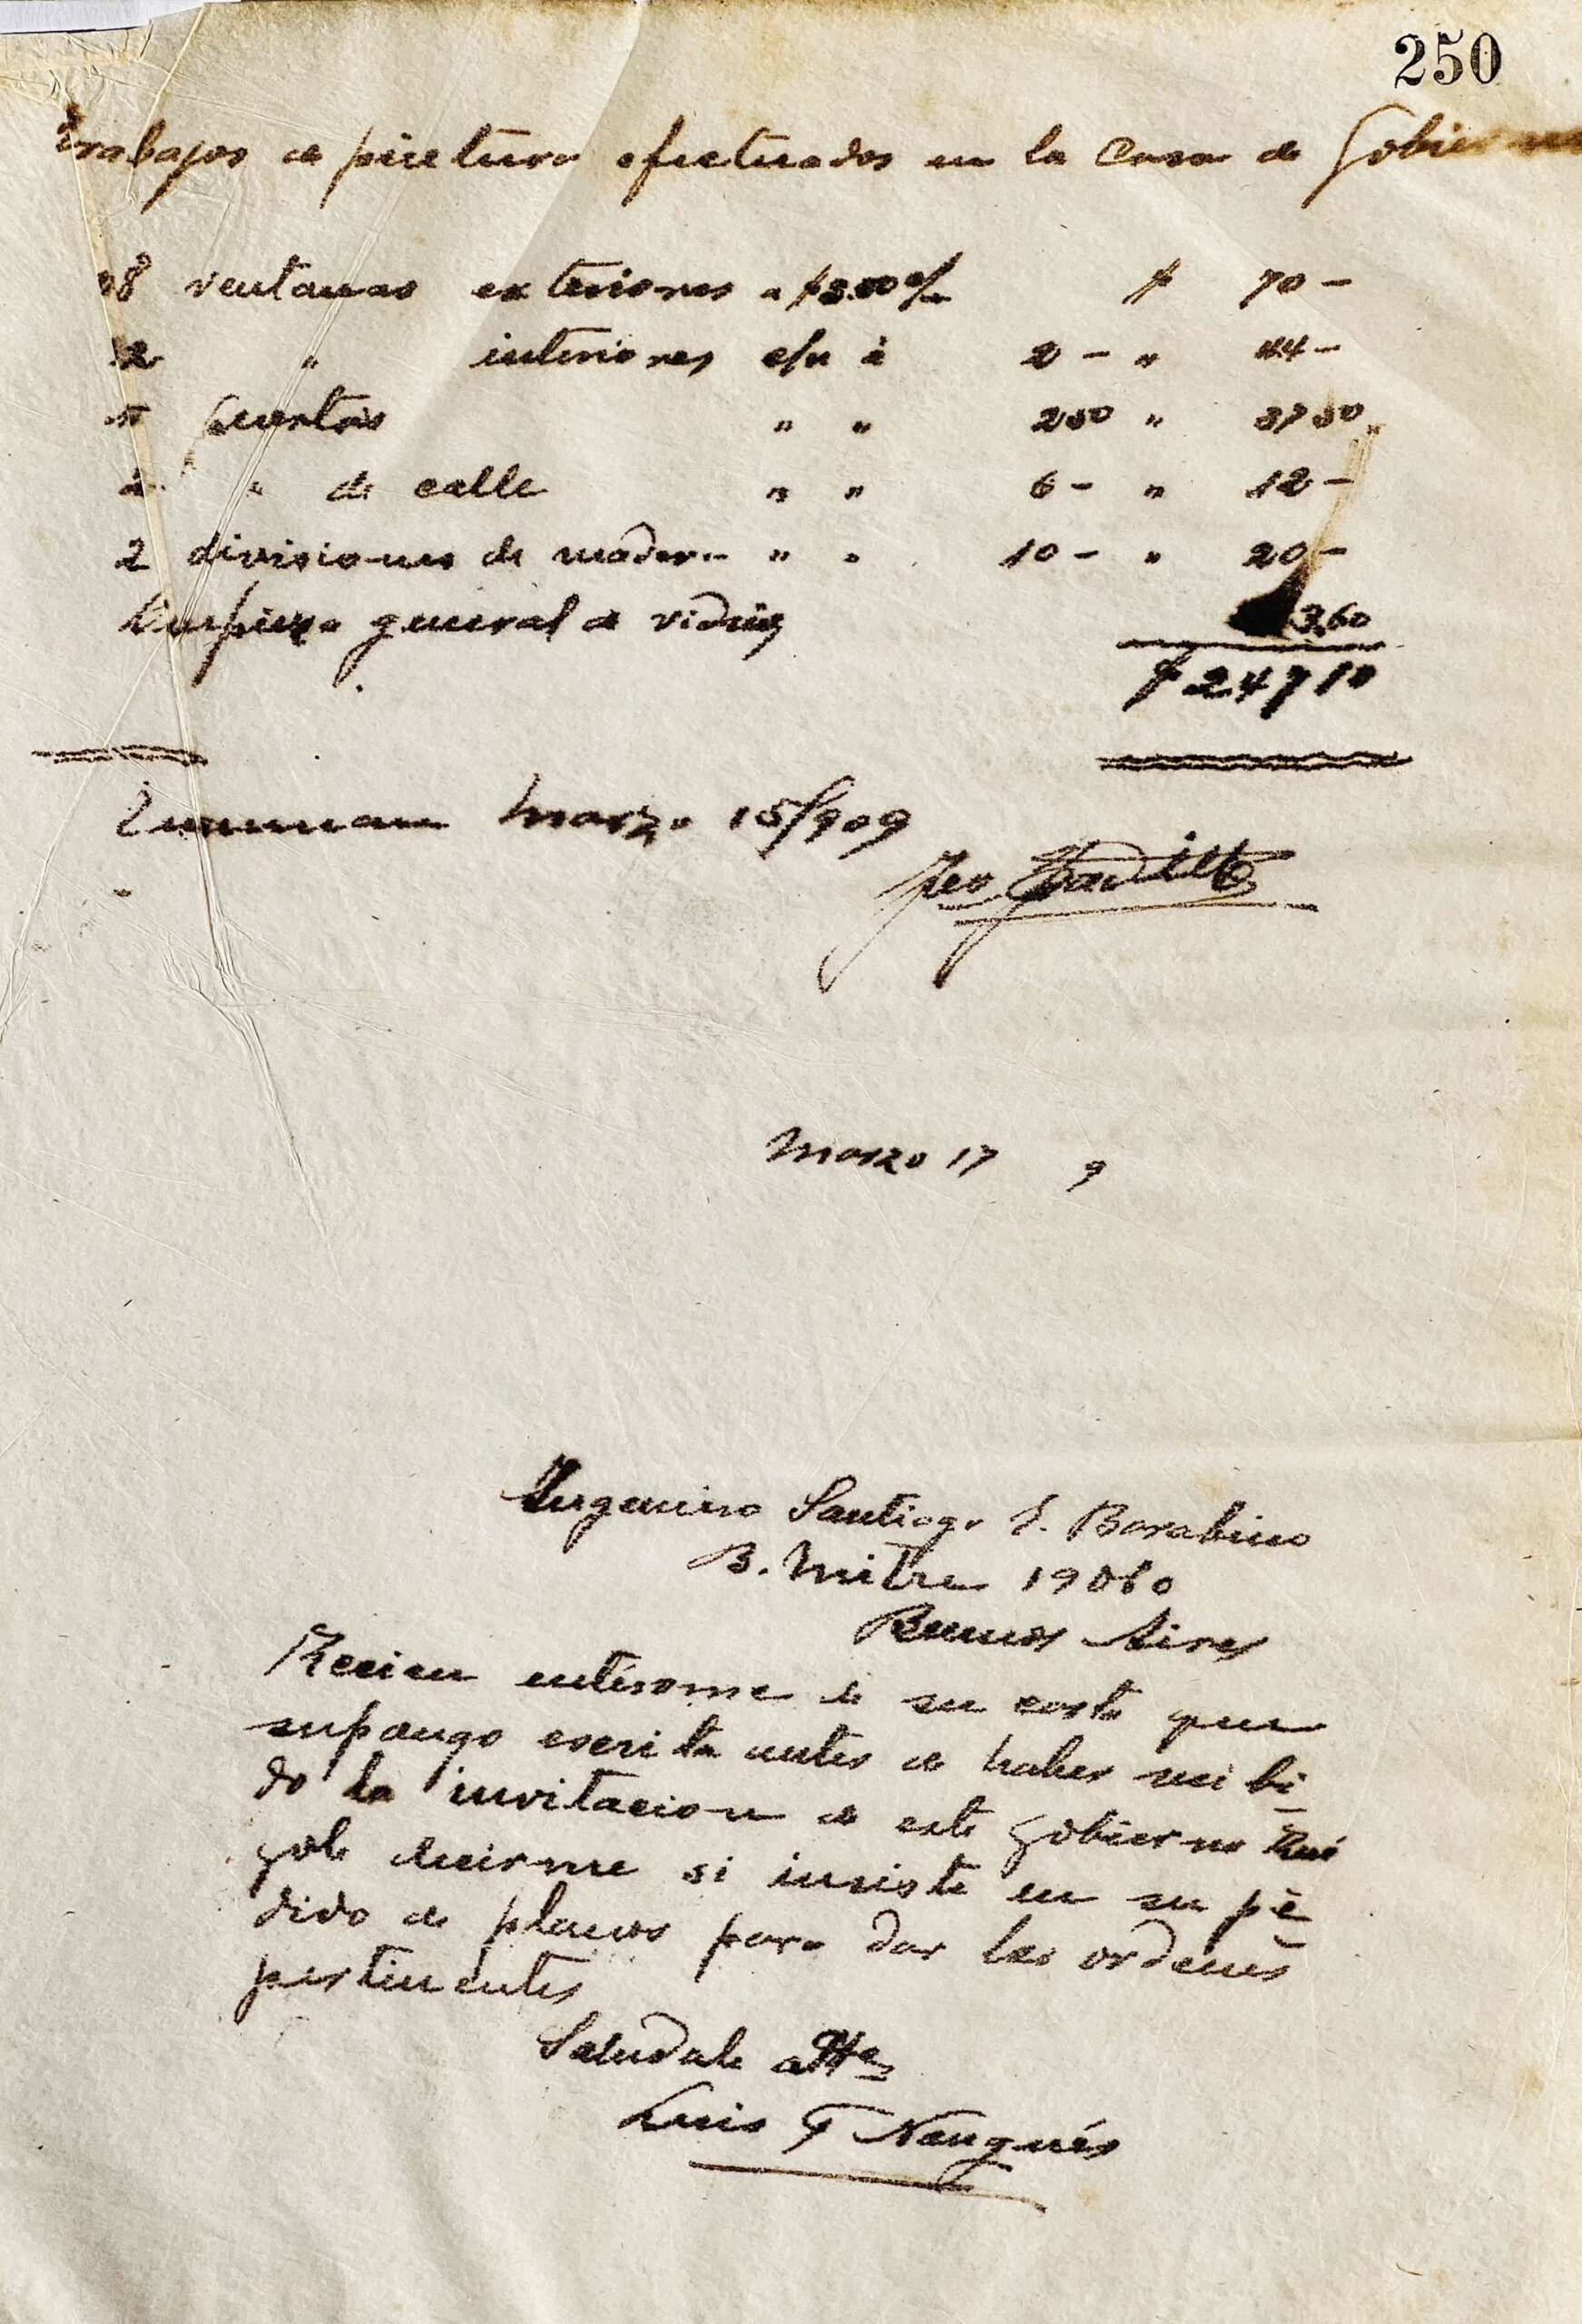 250
Trabajos de pintura efectuados en la Casa de Gobierno
ventanas exteriores a $ c/u $ 70 –
" interiores c/u à 2 – " 44 –
puertas " " 250 " 3750 "
2 " de calle " " 6 – " 12 –
2 divisiones de madera " " 10 – " 20 –
Limpieza general de vidrios 3,60
$ 247 10
Tucuman Marzo 15/909
Marzo 17 9
Ingeniero Santiago E. Barabino
B. Mitre
Buenos Aires
Recien entérome de su carta que
supongo escrita antes de haber recibi
do la invitacion de este gobierno Rué
gole decirme si insiste en su pe
dido de planos para dar las ordenes
pertinentes
Saludale atte
Luis F Nougués